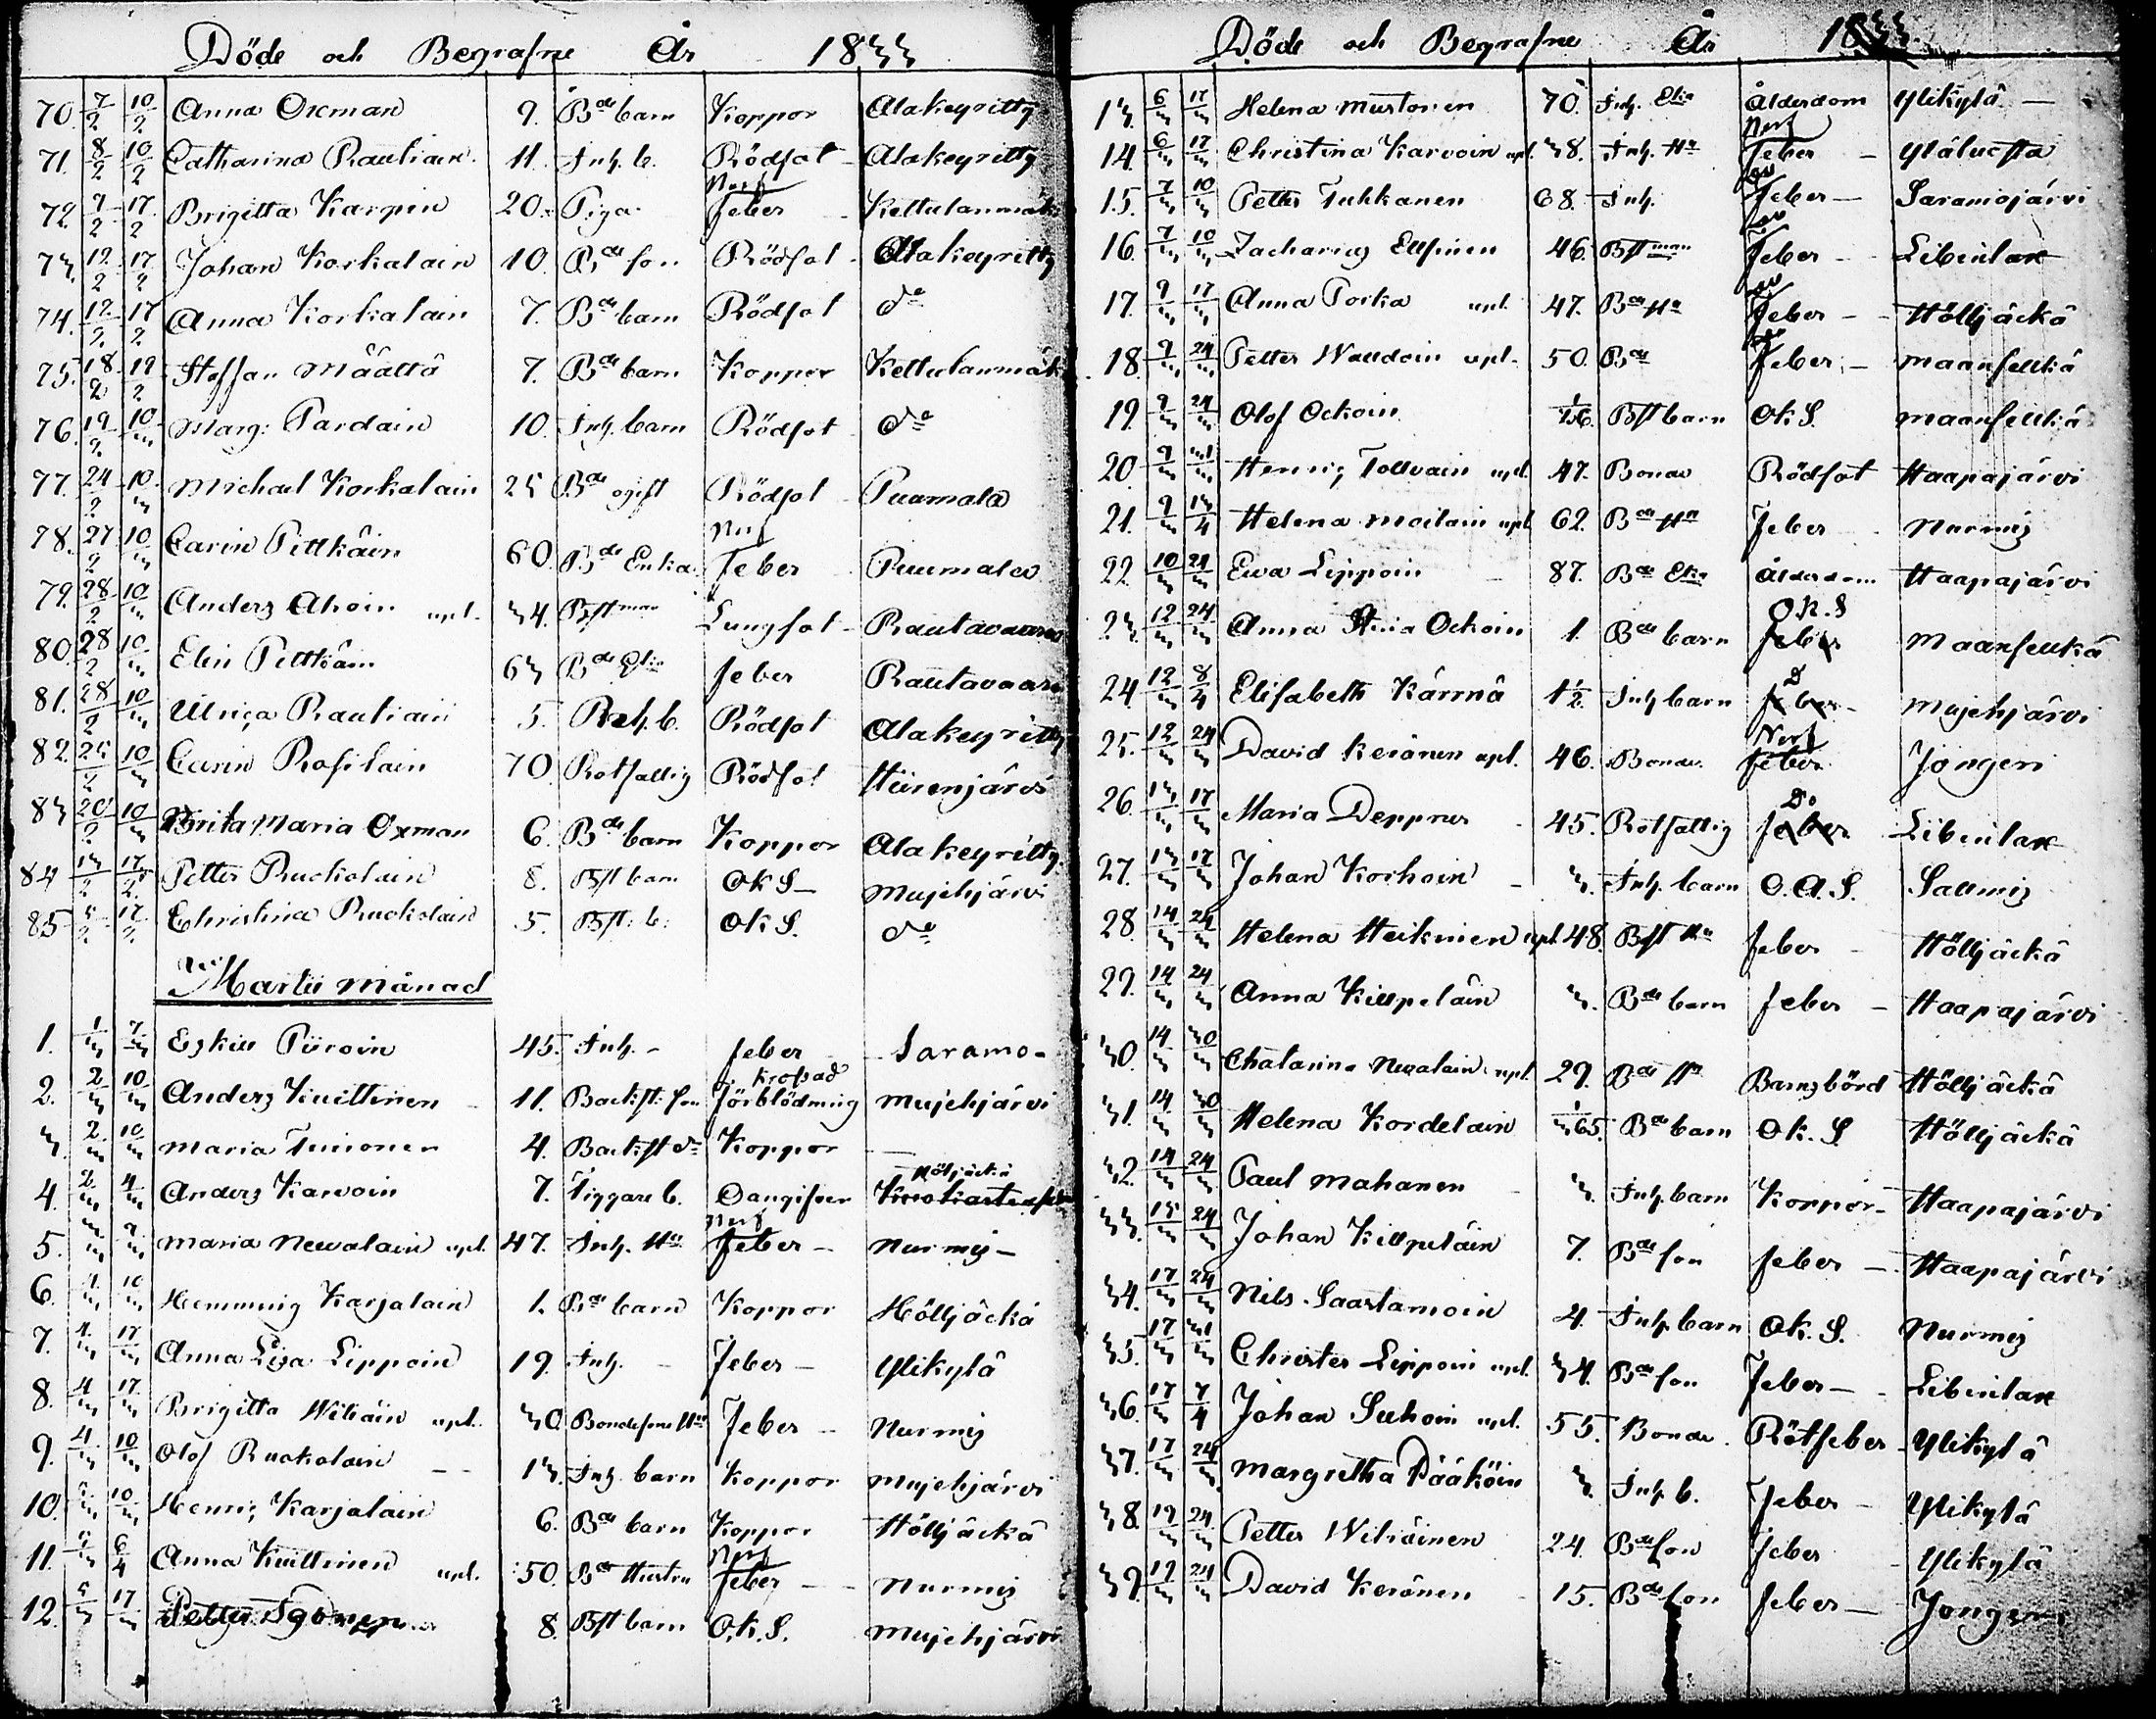 Döde och Begrafne År 1833
70. 7/2 10/2 Anna Oxman 9. Bde barn Koppor Alakeyritty
71. 8/2 10/2 Catharina Rautiain 11. Inh. b. Rödsot Alakeyritty
72. 9/2 17/2 Brigitta Karpin 20. Piga Nerf Feber Kettulanmäki
73. 12/2 17/2 Johan Korkalain 10. Bde son Rödsot Alakeyritty
74. 12/2 17/2 Anna Korkalain 7. Bde barn Rödsot do
75. 18/2 19/2 Steffan Määttä 7. Bde barn Koppor Kettulanmäk
76. 19/2 10/3 Marg: Pardain 10. Inh. barn Rödsot do
77. 24/2 10/3 Michael Korkalain 25 Bde ogift Rödsot Puumala
78. 27/2 10/3 Carin Pittkäin 60. Bde Enka Nerf Feber Puumala
79. 28/2 10/3 Anders Ahoin upl. 34. Bst man Lungsot Rautavaara
80. 28/2 10/3 Elin Pittkäin 63 Bde Eka feber Rautavaara
81. 28/2 10/3 Ulrica Rautiain 5. b. Rödsot Alakeyritty
82. 25/2 10/3 Carin Rosilain 70. Rotfattig Rödsot Hiirenjärvi
83 20/2 10/3 Brita Maria Oxman 6. Bde barn Koppor Alakeyritty
84 13/2 17/2 Petter Ruokolain 8. Bst barn Ok S Mujehjärvi
85 17/2 Christina Ruokolain 5. Bst: b: Ok S. do
Martii månad
1. 1/3 7/3 Eskill Piiroin 45. Inh. feber Saramo
2. 2/3 10/3 Anders Kuittinen 11. Backst: son krossad Förblödning Mujehjärvi
3. 2/3 10/3 Maria Turionen 4. Backst dr Koppor
4. 2/3 4/3 Anders Karvoin 7. Tiggare b. Dangifven Höljäckä
5. 3/3 9/3 Maria Nevalain upl. 47. Inh. Hu Nerf Feber Nurmis
6. 4/3 10/3 Hemming Karjalain 1. Bde barn Koppor Höljäckä
7. 4/3 17/3 Anna Lisa Lippoin 19. Inh. Feber Ylikylä
8. 4/3 17/3 Brigitta Wiliäin upl. 30 Bondesons Hu Feber Nurmis
9. 4/3 10/3 Olof Ruokolain 13. Inh. barn Koppor Mujehjärvi
10. 10/3 Henric Karjalain 6. Bde barn Koppor Höljäckä
11. 6/4 Anna Kuittinen upl. 50. Bde Hustru Nerf Feber Nurmis
12. 5/3 17/3 Petter 8. Bst barn O.k.S. Mujehjärvi
Döde och Begrafne År 1833.
13. 6/3 17/3 Helena Mustonen 70. Inh. Eka Ålderdom Ylikylä
14. 6/3 17/3 Christina Karvoin upl. 38. Inh. Hu Nerf Feber
15. 7/3 10/3 Petter Tuhkanen 68. Inh. do Feber Saramojärvi
16. 7/3 10/3 Zacharias Ellfinen 46. Bst man do Feber Libeinlax
17. 9/3 17/3 Anna Porka upl. 47. Bde Hu do Feber Höljäckä
18. 9/3 24/3 Petter Waudoin upl. 50. Bde do Feber Maansellkä
19. 9/3 24/3 Olof Ockoin Bst barn Ok S. Maansellkä
20. 9/3 31/3 Henric Tollvain upl. 47. Bonde Rödsot Haapajärvi
21. 9/3 13/4 Helena Moilain upl. 62. Bde Hu Feber Nurmis
22. 10/3 24/3 Ewa Lippoin 87. Bde Eka Ålderdom Haapajärvi
23. 12/3 24/3 Anna Stina Ockoin 1. Bde barn O.K.S feber Maansellkä
24 12/3 8/4 Elisabeth Kärnä 1½ Inh barn do feber Mujehjärvi
25. 12/3 24/3 David Keränen upl. 46. Bonde. Nerf feber Jongeri
26. 13/3 17/3 Maria Deppner 45. Rotfattig Do feber Libeinlax
27. 13/3 17/3 Johan Korhoin 3. Inh. barn O.A.S. Salmis
28. 14/3 24/3 Helena Heikinen upl. 48. Bst Hu feber Höljäckä
29. 14/3 24/3 Anna Killpeläin 3. Bde barn feber Haapajärvi
30. 14/3 30/3 Chatarina Nevalain upl. 29. Bde Hu Barnsbörd Höljäckä
31. 14/3 30/3 Helena Kordelain Bde barn Ok. S Höljäckä
32. 14/3 24/3 Paul Mahanen 3. Inh. barn Koppor Haapajärvi
33. 15/3 24/3 Johan Killpeläin 7. Bde son feber Haapajärvi
34. 17/3 24/3 Nils Saastamoin 4. Inh. barn Ok. S. Nurmis
35. 17/3 31/3 Christer Lippoin upl. 34. Bde son Feber Libeinlax
36. 17/3 7/4 Johan Suhoin upl. 55. Bonde. Rötfeber Ylikylä
37. 17/3 24/3 Margretha Pääköin 3. Inh. b. Feber Ylikylä
38. 19/3 24/3 Petter Wiliäinen 24. Bde son feber Ylikylä
39. 19/3 24/3 David Keränen 15. Bde son feber Jongeri